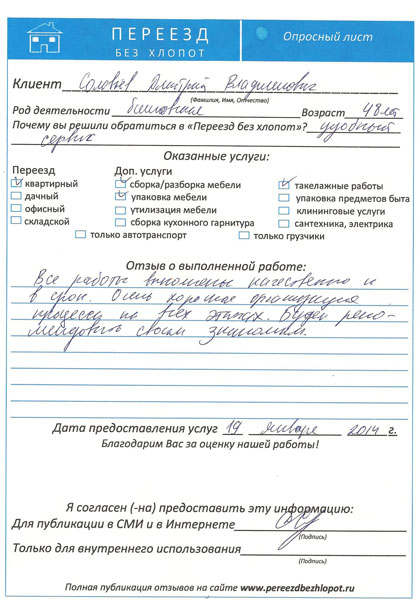 ПЕРЕЕЗД
БЕЗ ХЛОПОТ
Опросный лист
Клиент Соловьёв Дмитрий Владиленович
(Фамилия, Имя, Отчество)
Род деятельности Возраст 48 лет
Почему вы решили обратиться в «Переезд без хлопот»? удобный
сервис
Оказанные услуги:
Переезд Доп. услуги
квартирный сборка/разборка мебели такелажные работы
дачный упаковка мебели упаковка предметов быта
офисный утилизация мебели клининговые услуги
складской сборка кухонного гарнитура сантехника, электрика
только автотранспорт только грузчики
Отзыв о выполненной работе:
Все работы выполнены качественно и
в срок. Очень хорошая организация
процесса на всех этапах. Буду реко-
мендовать своим знакомым.
Дата предоставления услуг 19 января 2014 г.
Благодарим Вас за оценку нашей работы!
Я согласен (-на) предоставить эту информацию:
Для публикации в СМИ и в Интернете
(Подпись)
Только для внутреннего использования
(Подпись)
Полная публикация отзывов на сайте www.pereezdbezhlopot.ru